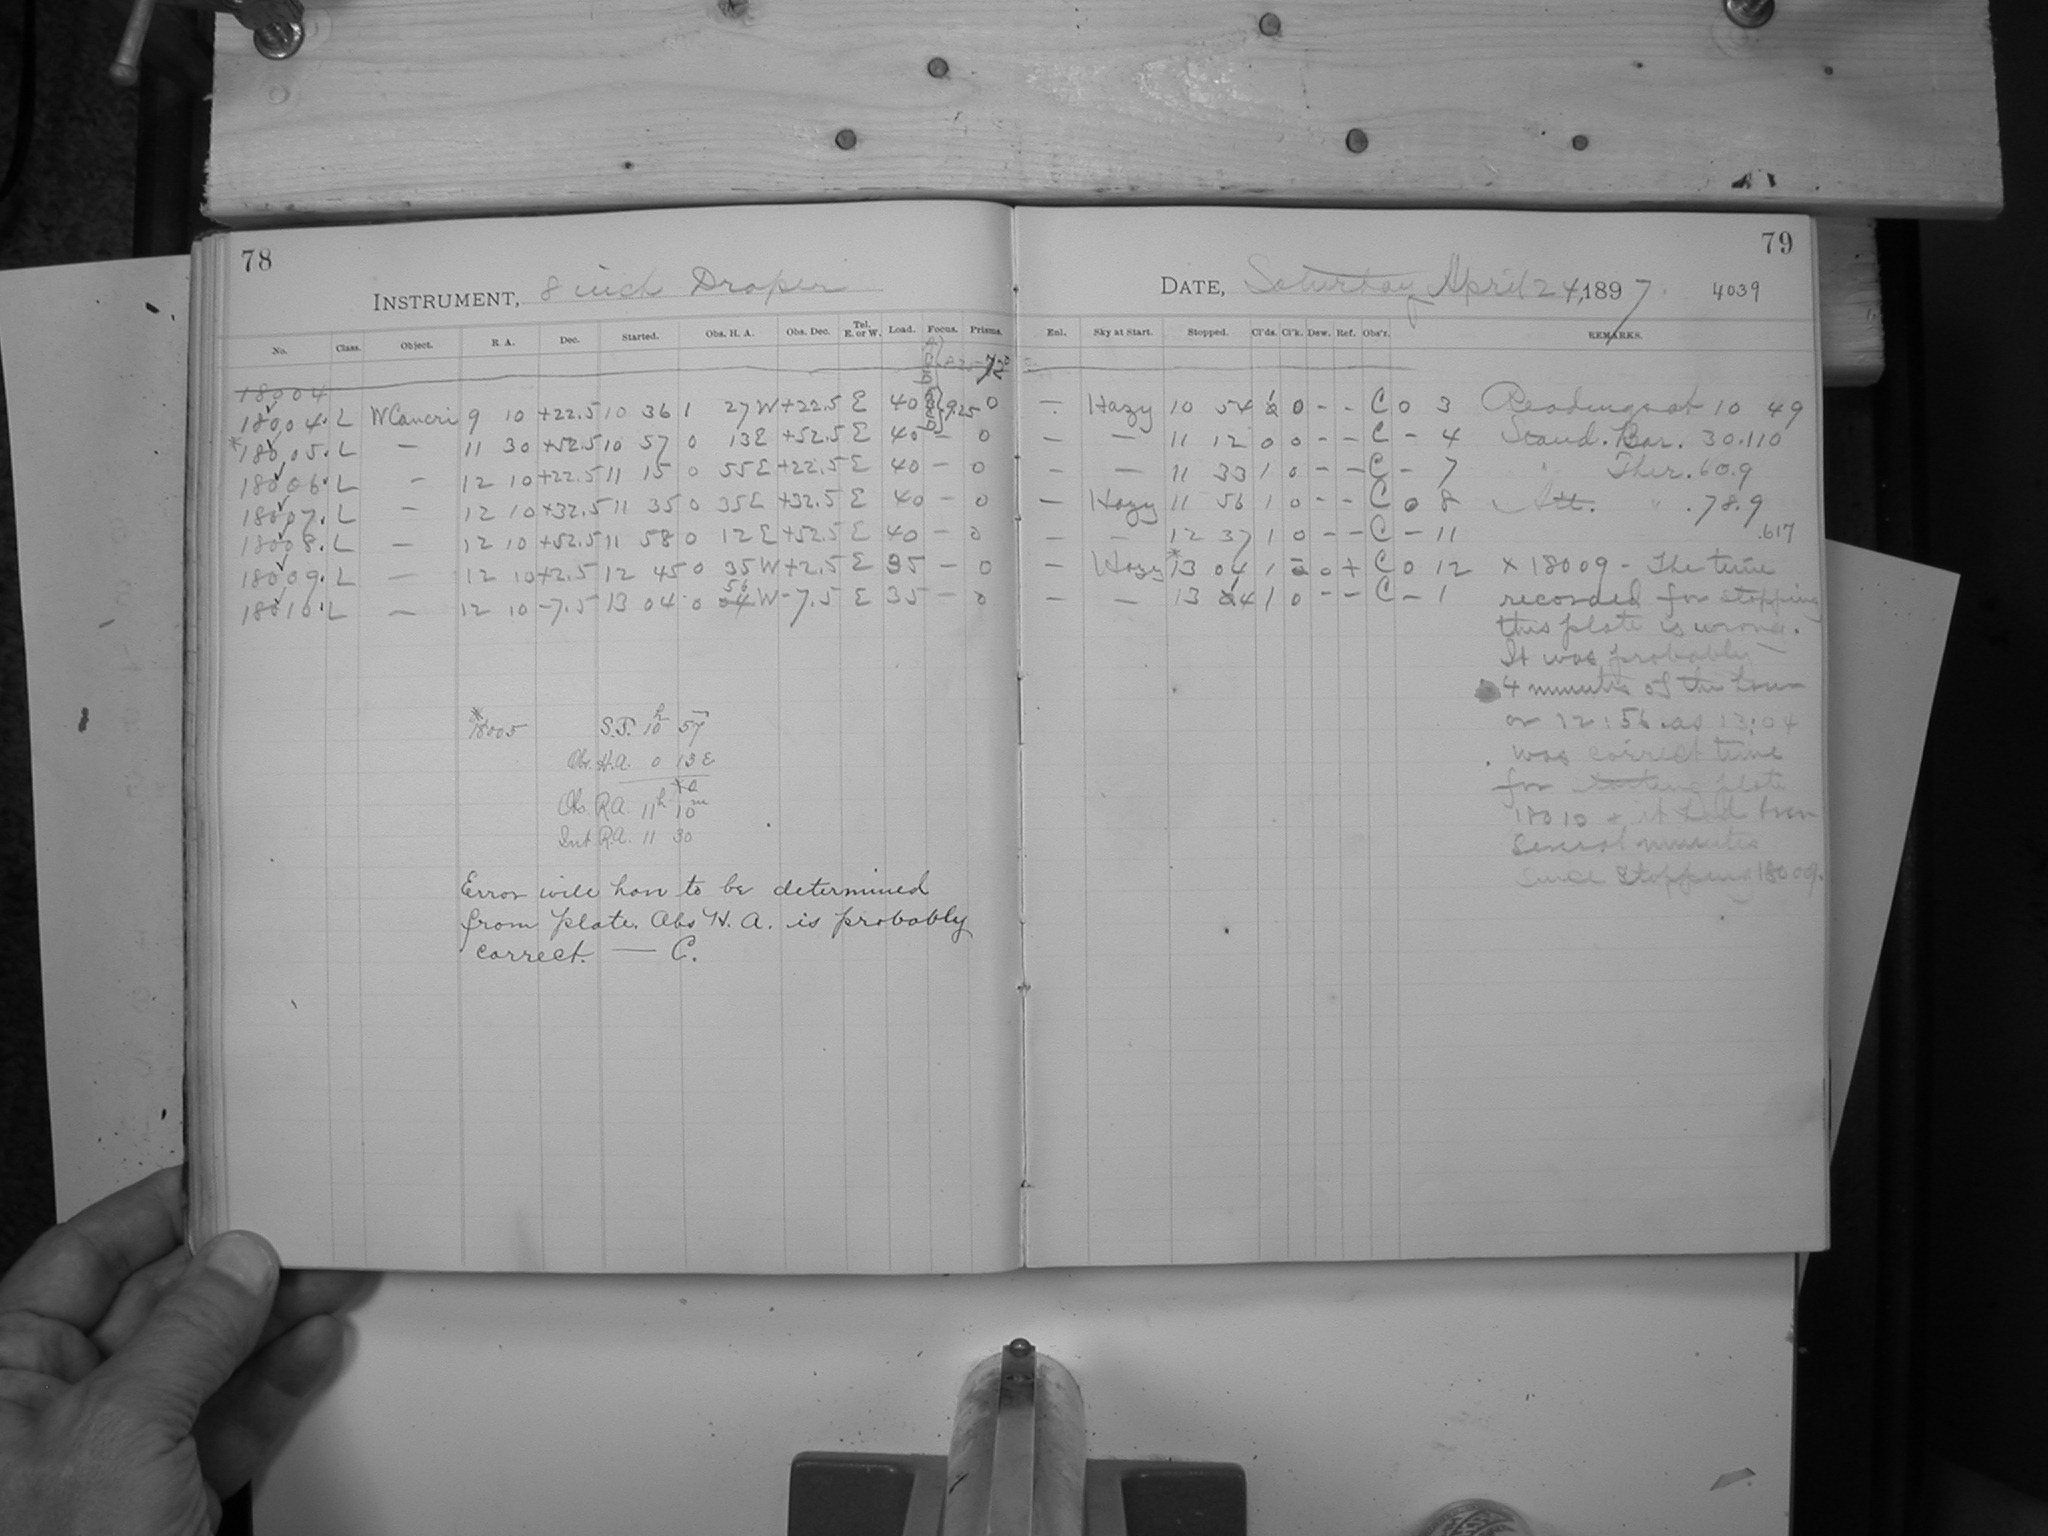 78
79
INSTRUMENT, 8 inch Draper
DATE, Saturday April 24, 1897. 4039
No. Class. Object. R. A. Dec. Started. Obs. H. A. Obs. Dec. Tel. E. or W. Load. Focus. Prisms.
Enl. Sky at Start. Stopped. Cl'ds. Cl'k. Dew. Ref. Obs'r. REMARKS.
18004
18004. L W Cancri 9 10 +22.5 10 36 1 27 W +22.5 E 40 9.25 0 — Hazy 10 54 0 - - C 0 3 Readings at 10 49
* 18005. L — 11 30 +52.5 10 57 0 13 E +52.5 E 40 — 0 — — 11 12 0 0 - - C - 4 Stand. Bar. 30.110
18006. L — 12 10 +22.5 11 15 0 55 E +22.5 E 40 — 0 — — 11 33 1 0 - - C - 7 " Ther. 60.9
18007. L — 12 10 +32.5 11 35 0 35 E +32.5 E 40 — 0 — Hazy 11 56 1 0 - - C 0 8 Att. " 78.9
18008. L — 12 10 +52.5 11 58 0 12 E +52.5 E 40 — 0 — — 12 37 1 0 - - C - 11 .617
18009. L — 12 10 +2.5 12 45 0 35 W +2.5 E 35 — 0 — Hazy * 13 04 1 0 + C 0 12 x 18009 - The time
18010. L — 12 10 -7.5 13 04 0 56 W -7.5 E 35 — 0 — — 13 14 1 0 - - C - 1 recorded for stopping
this plate is wrong.
It was probably
4 minutes of the hour
or 12:56 as 13:04
was correct time
for starting plate
18010 & it had been
several minutes
since stopping 18009.
* 18005 S.T. 10h 57m
Obs. H.A. 0 13 E
Obs. R.A. 11h 10m
Int R.A. 11 30
Error will have to be determined
from plate. Obs H. A. is probably
correct. — C.